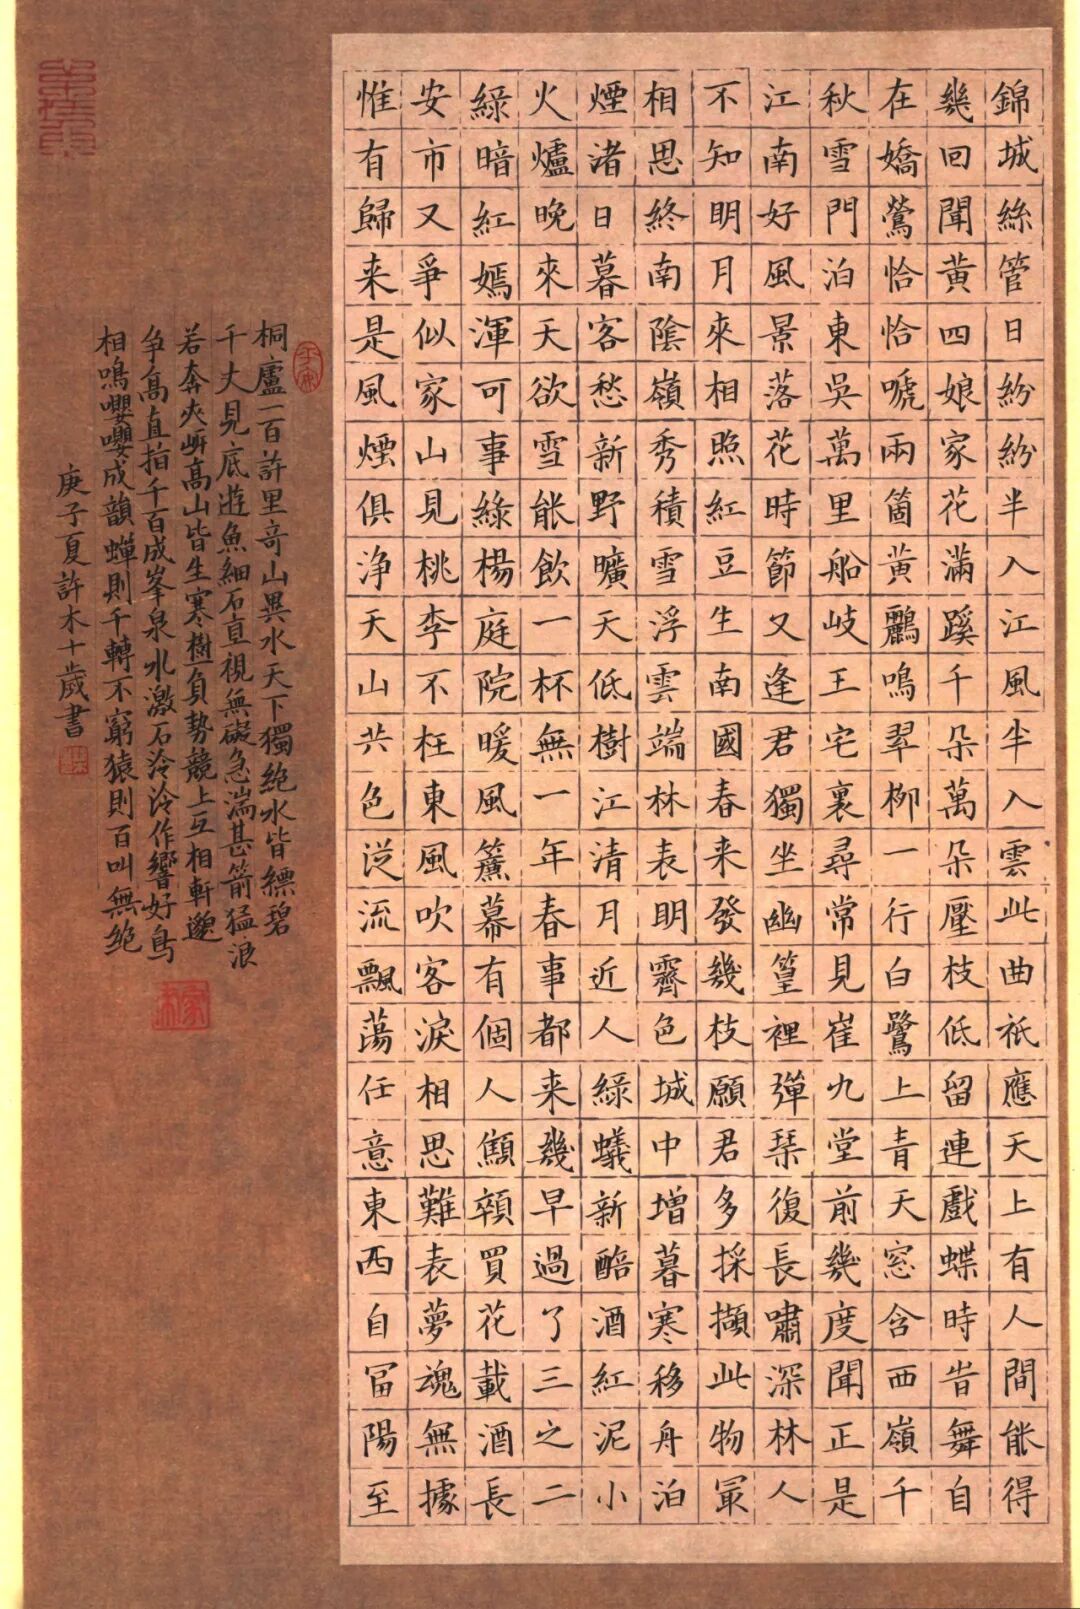 錦城絲管日紛紛半入江風半入雲此曲祇應天上有人間能得
幾回聞黃四娘家花滿蹊千朵萬朵壓枝低留連戲蝶時時舞自
在嬌鶯恰恰啼兩箇黃鸝鳴翠柳一行白鷺上青天窓含西嶺千
秋雪門泊東吳萬里船岐王宅裏尋常見崔九堂前幾度聞正是
江南好風景落花時節又逢君獨坐幽篁裡彈琹復長嘯深林人
不知明月來相照紅豆生南國春来發幾枝願君多採擷此物㝡
相思終南陰嶺秀積雪浮雲端林表明霽色城中增暮寒移舟泊
煙渚日暮客愁新野曠天低樹江清月近人綠蟻新醅酒紅泥小
火爐晩來天欲雪能飲一杯無一年春事都来幾早過了三之二
綠暗紅嫣渾可事綠楊庭院暖風簾幕有個人顦顇買花載酒長
安市又爭似家山見桃李不枉東風吹客淚相思難表夢魂無據
惟有歸来是風煙俱浄天山共色从流飄蕩任意東西自冨陽至
桐廬一百許里竒山異水天下獨絶水皆縹碧
千丈見底遊魚細石直視無礙急湍甚箭猛浪
若奔夾㟁高山皆生寒樹負勢競上互相軒邈
争高直指千百成峯泉水激石泠泠作響好鳥
相鳴嚶嚶成韻蟬則千轉不窮猿則百叫無絶
庚子夏許木十歲書